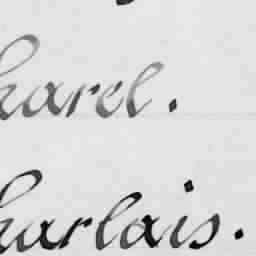 harel.
harlais.